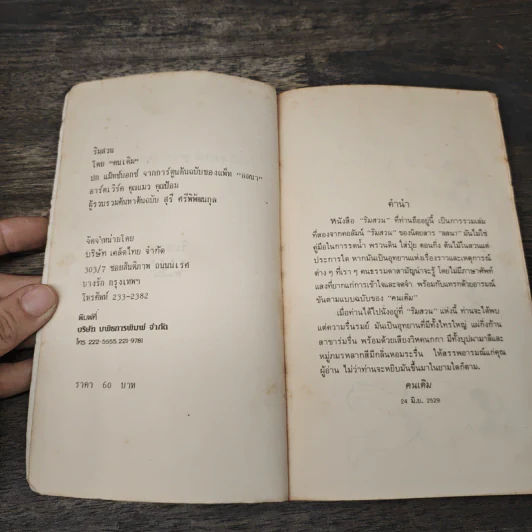 ริมสวน
โดย "คนเดิม"
ปก แม๊ทช์บอกซ์ จากการ์ตูนต้นฉบับของแพ็ท "ลลนา"
อาร์ตเวิร์ค คุณแมว คุณป้อม
ผู้รวบรวมต้นหาต้นฉบับ สุรี ศรีพิพัฒนกุล
จัดจำหน่ายโดย
บริษัท เคล็ดไทย จำกัด
303/7 ซอยสันติภาพ ถนนนเรศ
บางรัก กรุงเทพฯ
โทรศัพท์ 233-2382
พิมพ์ที่
บริษัท บพิธการพิมพ์ จำกัด
โทร. 222-5555 221-9781
ราคา 60 บาท
คำนำ
หนังสือ "ริมสวน" ที่ท่านถืออยู่นี้ เป็นการรวมเล่ม
ที่สองจากคอลัมน์ "ริมสวน" ของนิตยสาร "ลลนา" มันไม่ใช่
คู่มือในการรดน้ำ พรวนดิน ใส่ปุ๋ย ตอนกิ่ง ต้นไม้ในสวนแต่
ประการใด หากมันเป็นอุทยานแห่งเรื่องราวและเหตุการณ์
ต่าง ๆ ที่เรา ๆ คนธรรมดาสามัญน่าจะรู้ โดยไม่มีภาษาศัพท์
แสงที่ยากแก่การเข้าใจและจดจำ พร้อมกับแทรกด้วยอารมณ์
ขันตามแบบฉบับของ "คนเดิม"
เมื่อท่านได้ไปนั่งอยู่ที่ "ริมสวน" แห่งนี้ ท่านจะได้พบ
แต่ความรื่นรมย์ มันเป็นอุทยานที่มีทั้งไทรใหญ่ แผ่กิ่งก้าน
สาขาร่มรื่น พร้อมด้วยเสียงวิหคนกกา มีทั้งบุปผามาลีและ
หมู่ภมรหลากสีมีกลิ่นหอมระรื่น ให้สรรพอารมณ์แก่คุณ
ผู้อ่าน ไม่ว่าท่านจะหยิบมันขึ้นมาในยามใดก็ตาม.
คนเดิม
24 มิ.ย. 2529